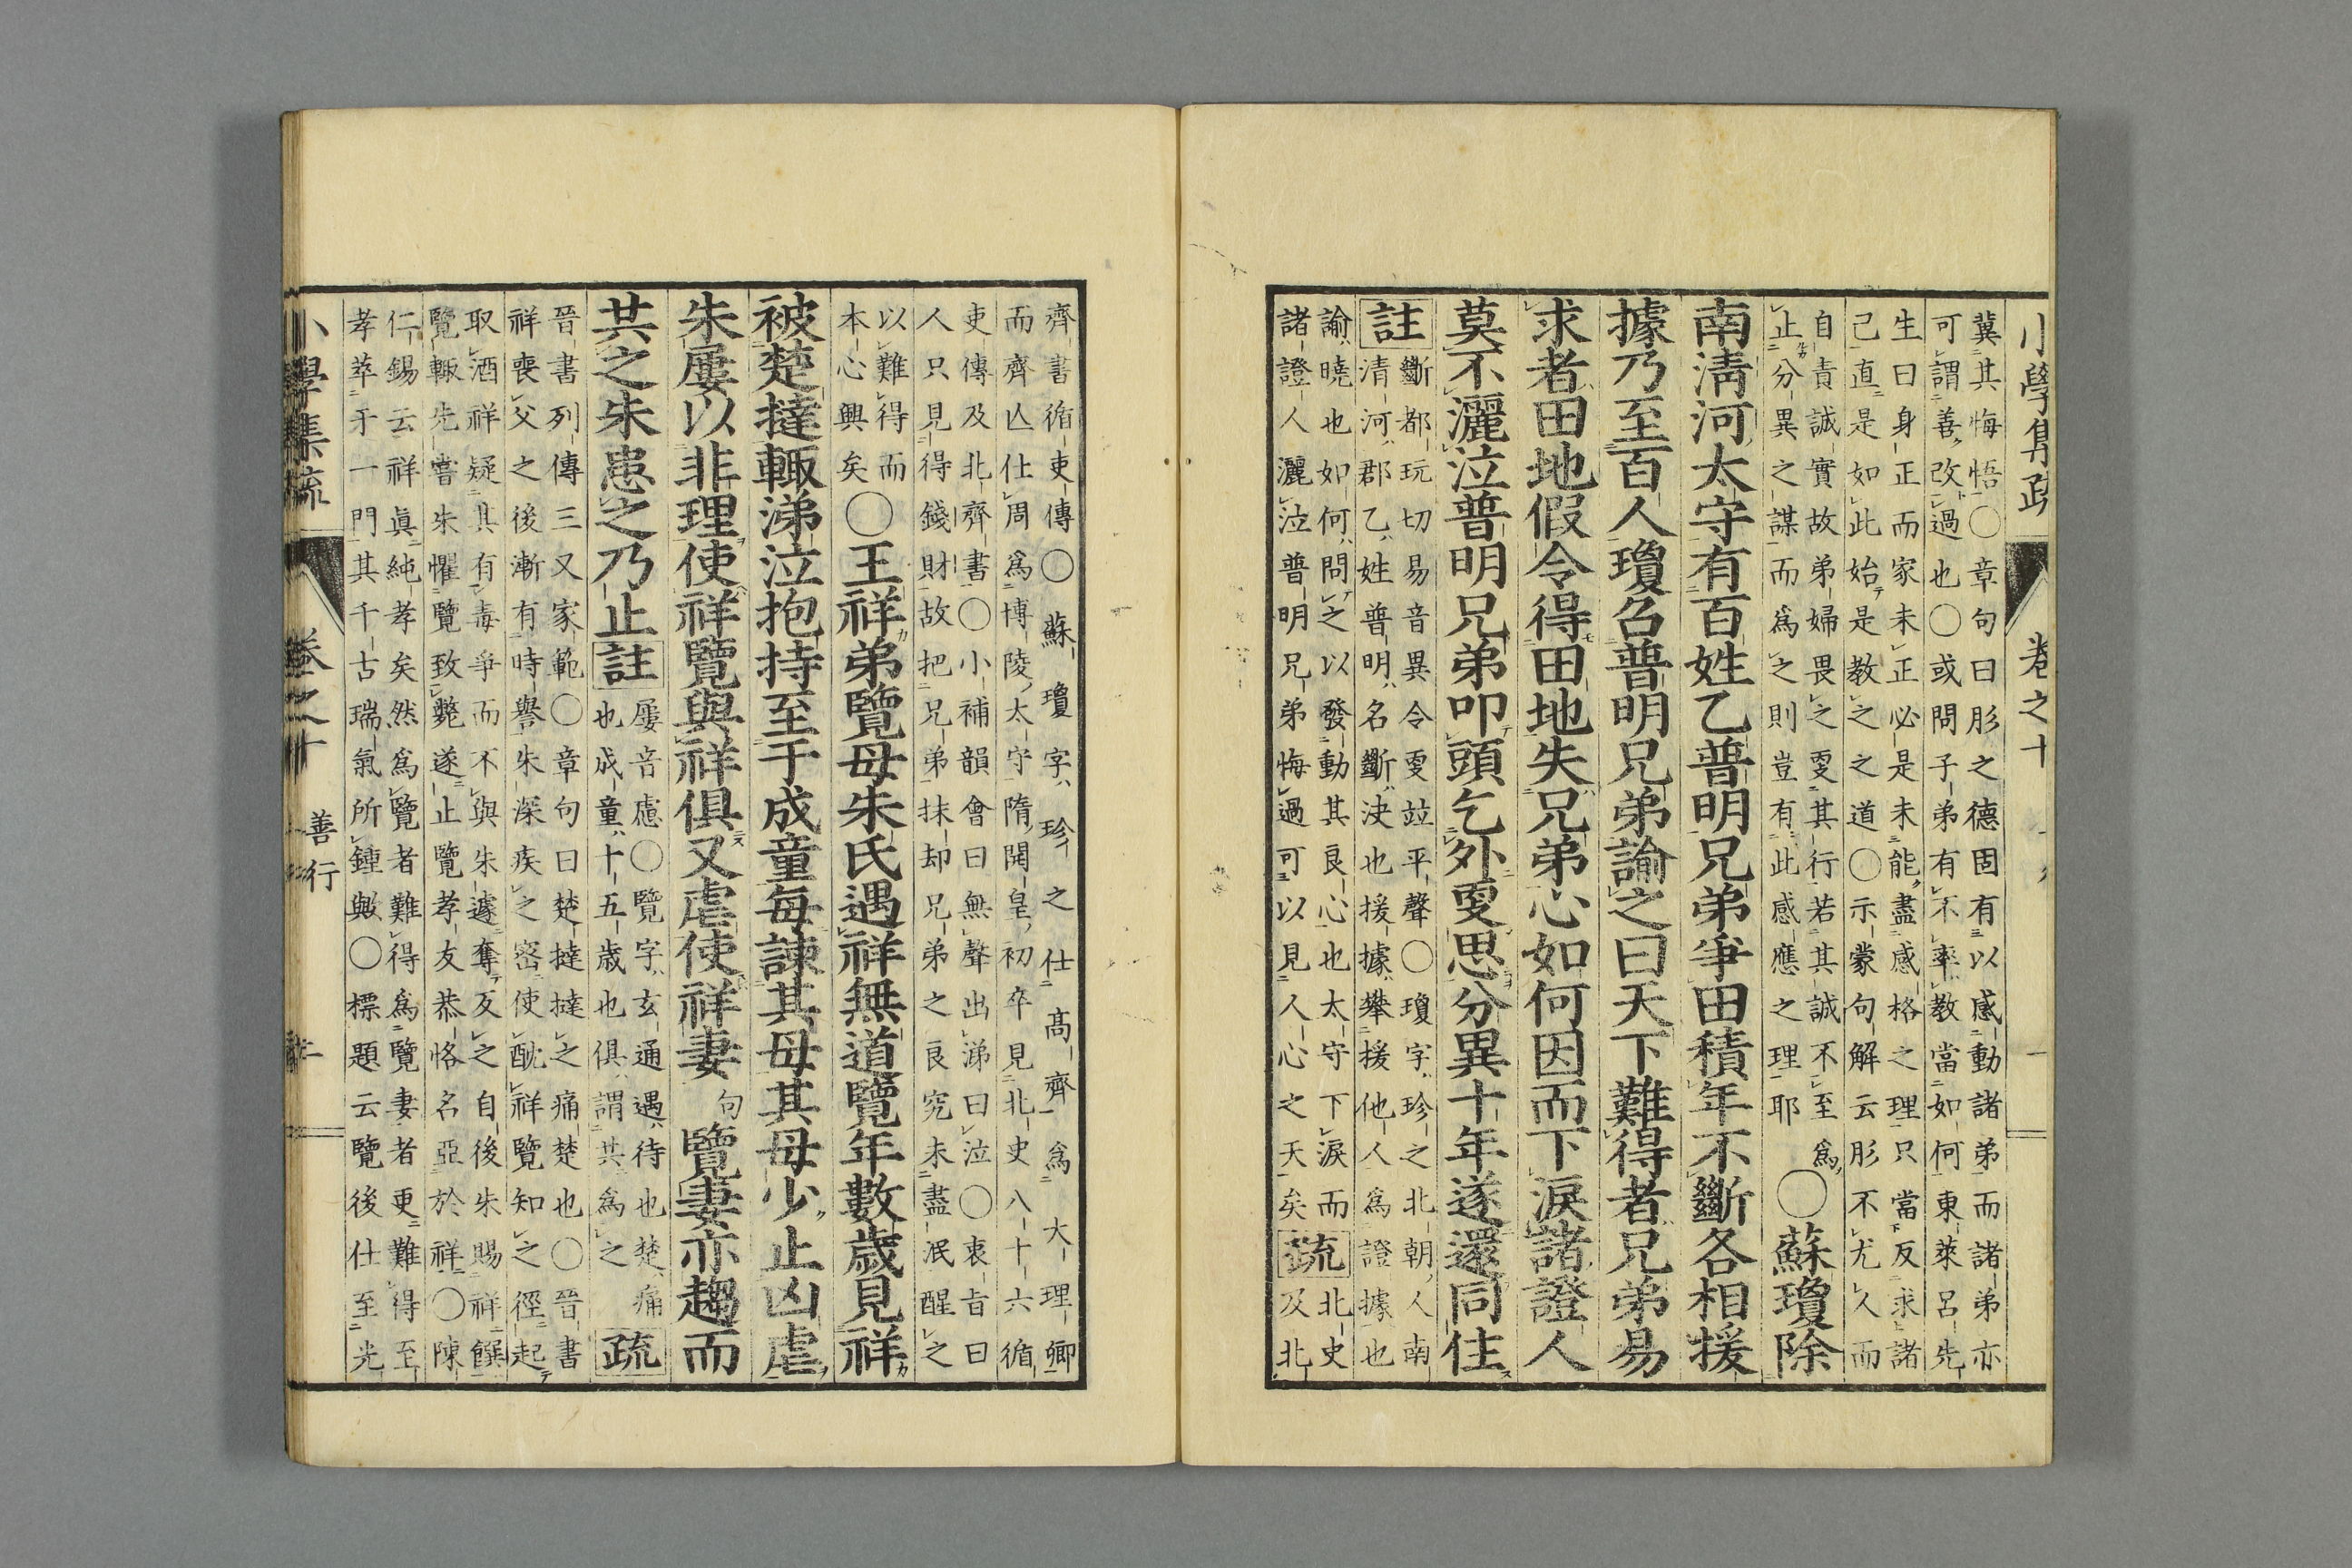 冀其悔悟○章句曰肜之德固有以感動諸弟而諸弟亦
可謂善改過也○或問子弟有不率教當如何東萊呂先
生曰身正而家未正必是未能盡感格之理只當反求諸
己直是如此始是教之之道○示蒙句解云肜不尤人而
自責誠實故弟婦畏之更其行若其誠不至爲
止分異之謀而爲之則豈有此感應之理耶
○蘇瓊除
南淸河太守有百姓乙普明兄弟爭田積年不斷各相援
據乃至百人瓊召普明兄弟諭之曰天下難得者兄弟易
求者田地假令得田地失兄弟心如何因而下淚諸證人
莫不灑泣普明兄弟叩頭乞外更思分異十年遂還同住
註
斷都玩切易音異令更竝平聲○瓊字珍之北朝人南
清河郡乙姓普明名斷决也援據攀援他人爲證據也
諭曉也如何問之以發動其良心也太守下淚而
諸證人灑泣普明兄弟悔過可以見人心之天矣
疏
北史
及北
齊書循吏傳○蘇瓊字珍之仕高齊爲大理卿
而齊亾仕周爲博陵太守隋開皇初卒見北史八十六循
吏傳及北齊書○小補韻會曰無聲出涕曰泣○衷旨曰
人只見得錢財故把兄弟抹却兄弟之良究未盡泯醒之
以難得而
本心興矣
○王祥弟覽母朱氏遇祥無道覽年數歲見祥
被楚撻輒涕泣抱持至于成童每諫其母其母少止凶虐
朱屢以非理使祥覽與祥俱又虐使祥妻句覽妻亦趨而
共之朱患之乃止
註
屢音慮○覽字玄通遇待也楚痛
也成童十五歲也俱謂共爲之
疏
晉書列傳三又家範○章句曰楚撻撻之痛楚也○晉書
祥喪父之後漸有時譽朱深疾之密使酖祥覽知之徑起
取酒祥疑其有毒爭而不與朱遽奪反之自後朱賜祥饌
覽輒先嘗朱懼覽致斃遂止覽孝友恭恪名亞於祥○陳
仁錫云祥眞純孝矣然爲覽者難得爲覽妻者更難得至
孝萃于一門其千古瑞氣所鍾與○標題云覽後仕至光
小學集疏
卷之十
善行